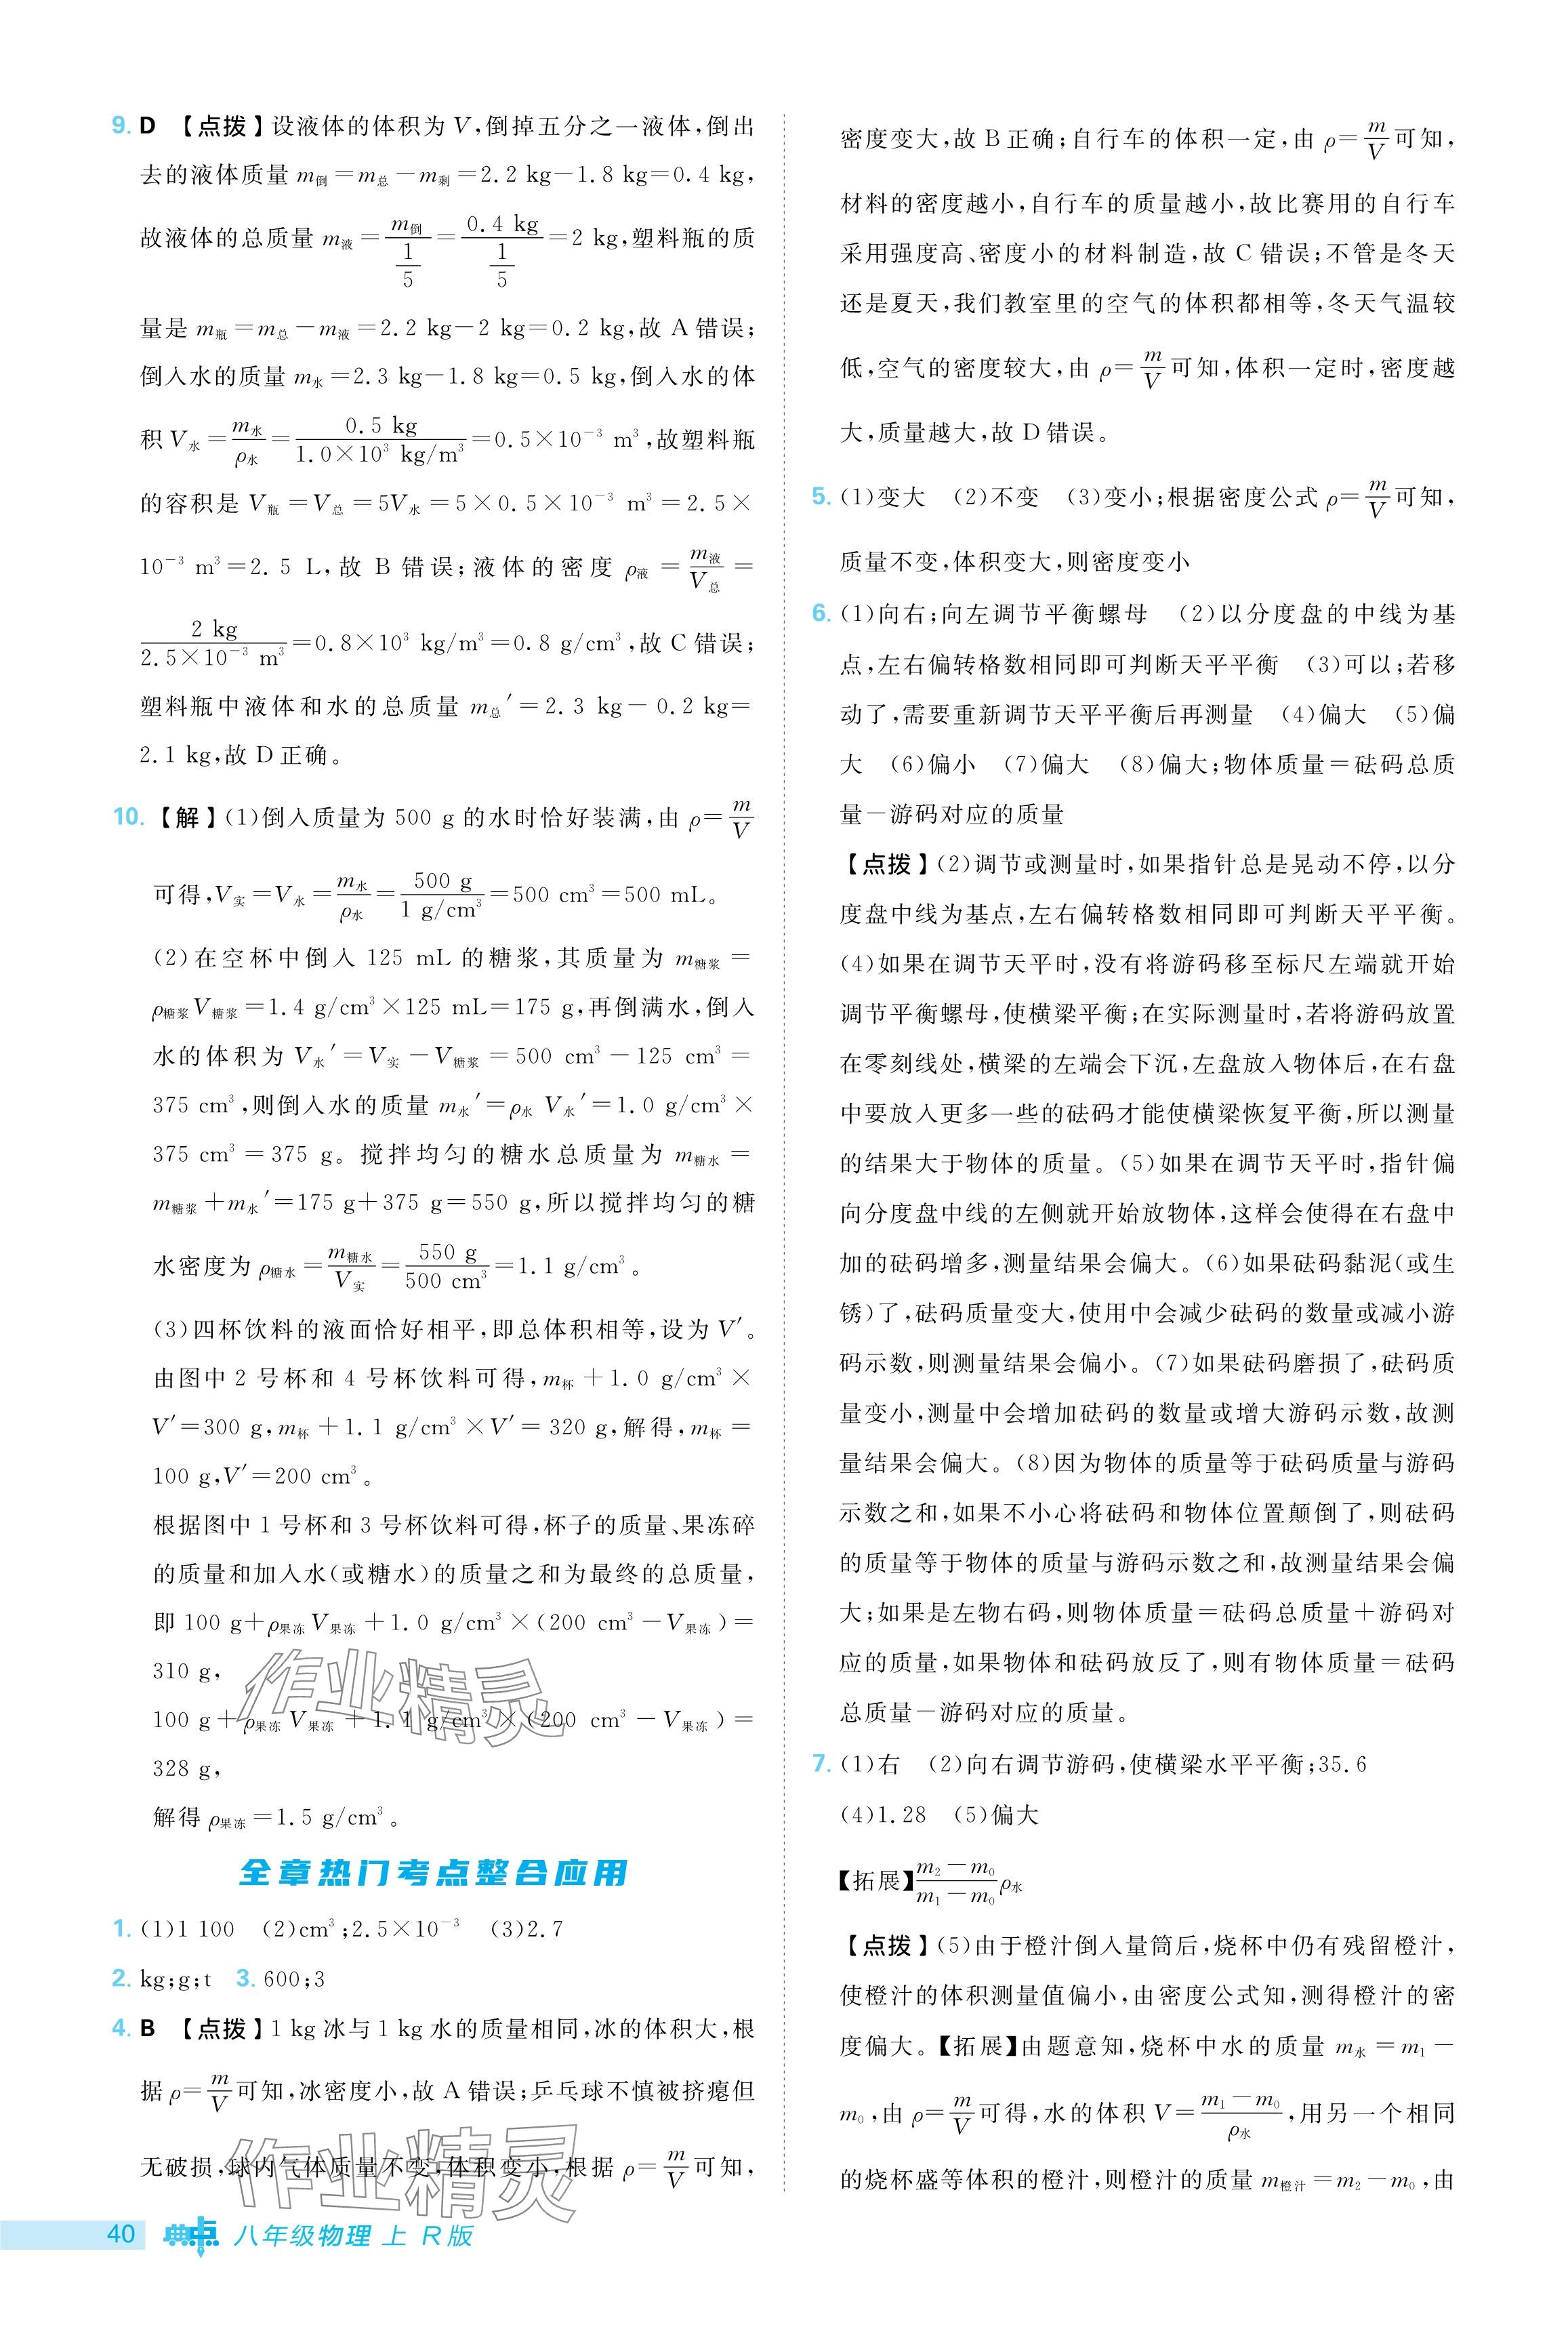 9. D 【点拨】设液体的体积为 V,倒掉五分之一液体,倒出
去的液体质量 m倒=m总-m剩=2.2 kg-1.8 kg=0.4 kg,
故液体的总质量 m液=m倒/(1/5)=0.4 kg/(1/5)=2 kg,塑料瓶的质
量是 m瓶=m总-m液=2.2 kg-2 kg=0.2 kg,故 A 错误;
倒入水的质量 m水=2.3 kg-1.8 kg=0.5 kg,倒入水的体
积 V水=m水/ρ水=0.5 kg/(1.0×10³ kg/m³)=0.5×10⁻³ m³,故塑料瓶
的容积是 V瓶=V总=5V水=5×0.5×10⁻³ m³=2.5×
10⁻³ m³=2.5 L,故 B 错误;液体的密度 ρ液=m液/V总=
2 kg/(2.5×10⁻³ m³)=0.8×10³ kg/m³=0.8 g/cm³,故 C 错误;
塑料瓶中液体和水的总质量 m总′=2.3 kg-0.2 kg=
2.1 kg,故 D 正确。
10. 【解】(1)倒入质量为 500 g 的水时恰好装满,由 ρ=m/V
可得,V实=V水=m水/ρ水=500 g/(1 g/cm³)=500 cm³=500 mL。
(2)在空杯中倒入 125 mL 的糖浆,其质量为 m糖浆=
ρ糖浆V糖浆=1.4 g/cm³×125 mL=175 g,再倒满水,倒入
水的体积为 V水′=V实-V糖浆=500 cm³-125 cm³=
375 cm³,则倒入水的质量 m水′=ρ水V水′=1.0 g/cm³×
375 cm³=375 g。搅拌均匀的糖水总质量为 m糖水=
m糖浆+m水′=175 g+375 g=550 g,所以搅拌均匀的糖
水密度为 ρ糖水=m糖水/V实=550 g/500 cm³=1.1 g/cm³。
(3)四杯饮料的液面恰好相平,即总体积相等,设为 V′。
由图中 2 号杯和 4 号杯饮料可得,m杯+1.0 g/cm³×
V′=300 g,m杯+1.1 g/cm³×V′=320 g,解得,m杯=
100 g,V′=200 cm³。
根据图中 1 号杯和 3 号杯饮料可得,杯子的质量、果冻碎
的质量和加入水(或糖水)的质量之和为最终的总质量,
即 100 g+ρ果冻V果冻+1.0 g/cm³×(200 cm³-V果冻)=
310 g,
100 g+ρ果冻V果冻+1.1 g/cm³×(200 cm³-V果冻)=
328 g,
解得 ρ果冻=1.5 g/cm³。
作业精灵
全章热门考点整合应用
1. (1)1 100 (2)cm³;2.5×10⁻³ (3)2.7
2. kg;g;t 3. 600;3
4. B 【点拨】1 kg 冰与 1 kg 水的质量相同,冰的体积大,根
据 ρ=m/V可知,冰密度小,故 A 错误;乒乓球不慎被挤瘪但
无破损,球内气体质量不变,体积变小,根据 ρ=m/V可知,
作业精灵
40 典中点 八年级物理 上 R版
密度变大,故 B 正确;自行车的体积一定,由 ρ=m/V可知,
材料的密度越小,自行车的质量越小,故比赛用的自行车
采用强度高、密度小的材料制造,故 C 错误;不管是冬天
还是夏天,我们教室里的空气的体积都相等,冬天气温较
低,空气的密度较大,由 ρ=m/V可知,体积一定时,密度越
大,质量越大,故 D 错误。
5. (1)变大 (2)不变 (3)变小;根据密度公式 ρ=m/V可知,
质量不变,体积变大,则密度变小
6. (1)向右;向左调节平衡螺母 (2)以分度盘的中线为基
点,左右偏转格数相同即可判断天平平衡 (3)可以;若移
动了,需要重新调节天平平衡后再测量 (4)偏大 (5)偏
大 (6)偏小 (7)偏大 (8)偏大;物体质量=砝码总质
量-游码对应的质量
【点拨】(2)调节或测量时,如果指针总是晃动不停,以分
度盘中线为基点,左右偏转格数相同即可判断天平平衡。
(4)如果在调节天平时,没有将游码移至标尺左端就开始
调节平衡螺母,使横梁平衡;在实际测量时,若将游码放置
在零刻线处,横梁的左端会下沉,左盘放入物体后,在右盘
中要放入更多一些的砝码才能使横梁恢复平衡,所以测量
的结果大于物体的质量。(5)如果在调节天平时,指针偏
向分度盘中线的左侧就开始放物体,这样会使得在右盘中
加的砝码增多,测量结果会偏大。(6)如果砝码黏泥(或生
锈)了,砝码质量变大,使用中会减少砝码的数量或减小游
码示数,则测量结果会偏小。(7)如果砝码磨损了,砝码质
量变小,测量中会增加砝码的数量或增大游码示数,故测
量结果会偏大。(8)因为物体的质量等于砝码质量与游码
示数之和,如果不小心将砝码和物体位置颠倒了,则砝码
的质量等于物体的质量与游码示数之和,故测量结果会偏
大;如果是左物右码,则物体质量=砝码总质量+游码对
应的质量,如果物体和砝码放反了,则有物体质量=砝码
总质量-游码对应的质量。
7. (1)右 (2)向右调节游码,使横梁水平平衡;35.6
(4)1.28 (5)偏大
【拓展】(m₂-m₀)/(m₁-m₀)ρ水
【点拨】(5)由于橙汁倒入量筒后,烧杯中仍有残留橙汁,
使橙汁的体积测量值偏小,由密度公式知,测得橙汁的密
度偏大。【拓展】由题意知,烧杯中水的质量 m水=m₁-
m₀,由 ρ=m/V可得,水的体积 V=(m₁-m₀)/ρ水,用另一个相同
的烧杯盛等体积的橙汁,则橙汁的质量 m橙汁=m₂-m₀,由